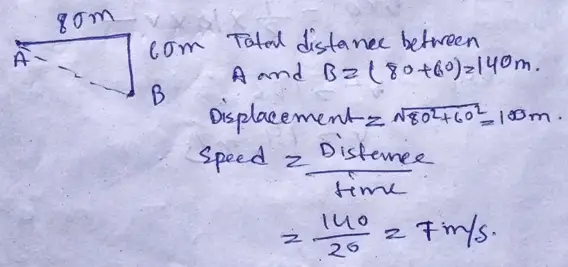 80m
A
60m
B
Total distance between
A and B = (80+60) = 140m.
Displacement = √80²+60² = 100m.
Speed = Distance
time
= 140
20
= 7 m/s.